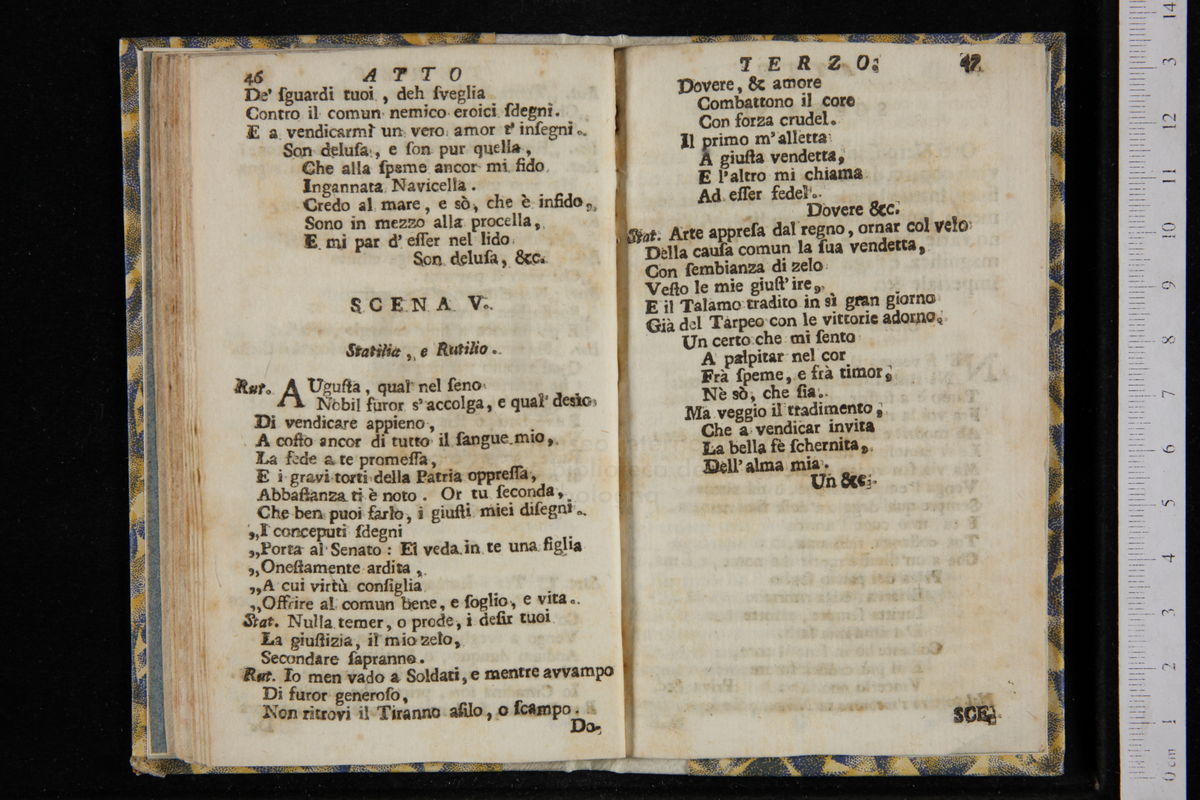 46 ATTO
De' ſguardi tuoi, deh ſveglia
Contro il comun nemico eroici ſdegni.
E a vendicarmi un vero amor t' inſegni.
Son deluſa, e ſon pur quella,
Che alla ſpeme ancor mi fido
Ingannata Navicella.
Credo al mare, e sò, che è infido,
Sono in mezzo alla procella,
E mi par d' eſſer nel lido
Son deluſa, &c.
SCENA V.
Statilia, e Rutilio.
Rut. AUguſta, qual nel ſeno
Nobil furor s'accolga, e qual desìo
Di vendicare appieno,
A coſto ancor di tutto il ſangue mio,
La fede a te promeſſa,
E i gravi torti della Patria oppreſſa,
Abbaſtanza ti è noto. Or tu ſeconda,
Che ben puoi farlo, i giuſti miei diſegni.
„I conceputi ſdegni
„Porta al Senato: Ei veda in te una figlia
„Oneſtamente ardita,
„A cui virtù conſiglia
„Offrire al comun bene, e ſoglio, e vita.
Stat. Nulla temer, o prode, i deſir tuoi
La giuſtizia, il mio zelo,
Secondare ſapranno.
Rut. Io men vado a Soldati, e mentre avvampo
Di furor generoſo,
Non ritrovi il Tiranno aſilo, o ſcampo.
Do-
TERZO. 47
Dovere, & amore
Combattono il core
Con forza crudel.
Il primo m'alletta
A giuſta vendetta,
E l'altro mi chiama
Ad eſſer fedel.
Dovere &c.
Stat. Arte appreſa dal regno, ornar col velo
Della cauſa comun la ſua vendetta,
Con ſembianza di zelo
Veſto le mie giuſt' ire,
E il Talamo tradito in sì gran giorno
Già del Tarpeo con le vittorie adorno.
Un certo che mi ſento
A palpitar nel cor
Frà ſpeme, e frà timor,
Nè sò, che ſia.
Ma veggio il tradimento,
Che a vendicar invita
La bella fè ſchernita,
Dell'alma mia.
Un &c.
SCE-
0 cm 1 2 3 4 5 6 7 8 9 10 11 12 3 14